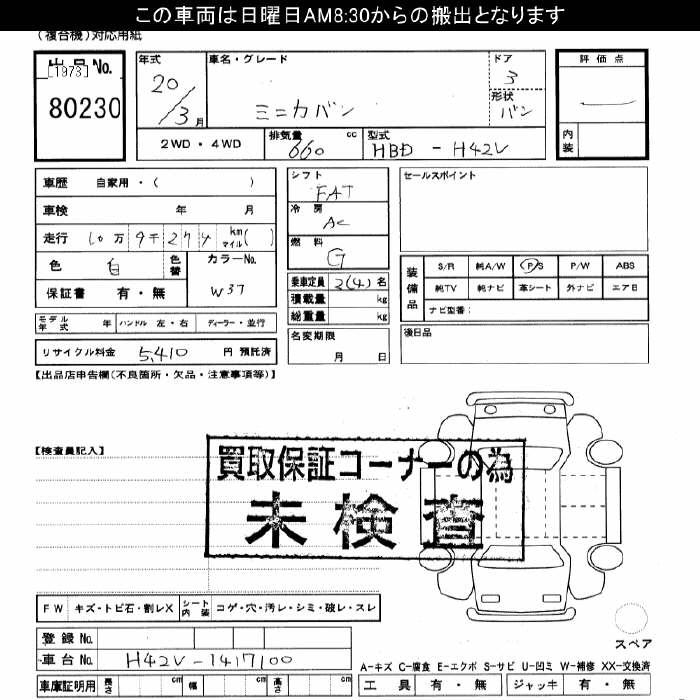 この車両は日曜日AM8:30からの搬出となります
(複合機)対応用紙
出品No.
[1973]
80230
年式
20/3月
車名・グレード
ミニカバン
ドア
3
形状
バン
評価点
内装
2WD・4WD
排気量 660 cc
型式 HBD-H42V
車歴 自家用・( )
車検 年 月
走行 10万9千274 km マイル( )
色 白 色替
カラーNo. W37
保証書 有・無
シフト FAT
冷房 AC
燃料 G
乗車定員 2(4)名
積載量 kg
総重量 kg
セールスポイント
装備品
S/R 純A/W P/S P/W ABS
純TV 純ナビ 革シート 外ナビ エアB
ナビ型番:
モデル年式 年 ハンドル 左・右 ディーラー・並行
リサイクル料金 5,410 円 預託済
名変期限 月 日
後日品
【出品店申告欄(不良箇所・欠品・注意事項等)】
【検査員記入】
買取保証コーナーの為
未検査
FW キズ・トビ石・割レX シート内装 コゲ・穴・汚レ・シミ・破レ・スレ
スペア
登録No.
車台No. H42V-1417100
A-キズ C-腐食 E-エクボ S-サビ U-凹ミ W-補修 XX-交換済
車庫証明用 長さ cm 幅 cm 高さ cm
工具 有・無 ジャッキ 有・無